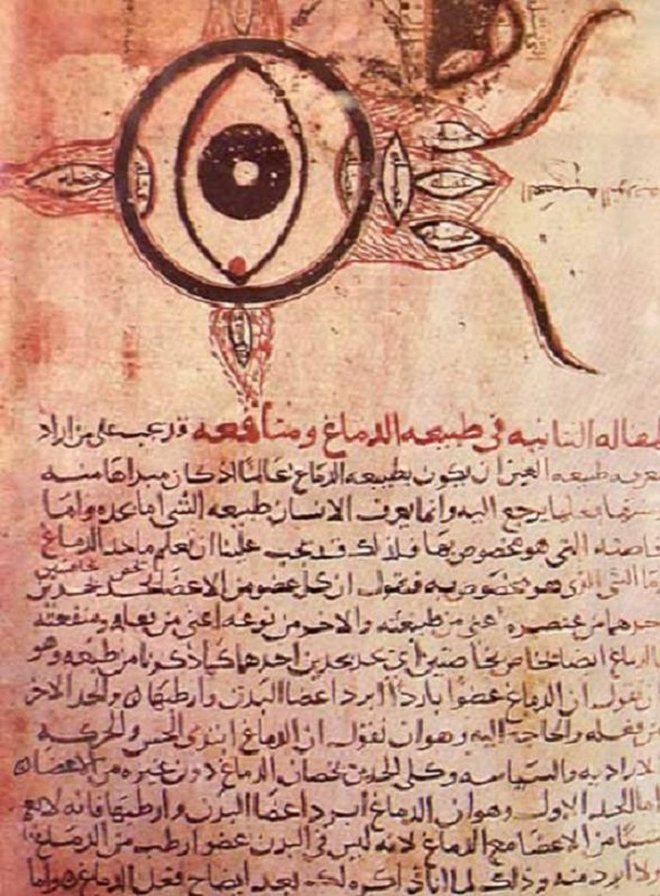 عضله
عضله
عضله
العصبه
مقاله الثانيه في طبيعه الدماغ ومنافعه قد يجب على من اراد
معرفه طبيعه العين ان يكون بطبيعه الدماغ عالما اذ كان مبداها منه
يرجع اليه وانما يعرف الانسان طبيعه الشي اما بحده واما
التي هو مخصوص بها فلذلك قد يجب علينا ان نعلم ما حد الدماغ
الشي الذي هو مخصوص به فنقول ان كل عضو من الاعضا يحد بحدين
احدهما من عنصره اعني من طبيعته والاخر من نوعه اعني من فعله ومنفعته
والدماغ ايضا خاص بخاصتين اي يحد بحدين احدهما كما ذكرنا من طبعه وهو
ان نقول ان الدماغ عضو بارد ابرد اعضا البدن وارطبها والحد الاخر
من فعله والحاجه اليه وهو ان نقول ان الدماغ ابتدى الحس والحركه
الاراديه والسياسه وكلى الحدين يخصان الدماغ دون غيره من الاعضا
اما الحد الاول وهو ان الدماغ ابرد اعضا البدن وارطبها فانه لا يعم
شيا من الاعضا مع الدماغ لانه ليس في البدن عضو ارطب من الدماغ
ولا ابرد منه وذلك انا ذاكره لك بعد ايضاح فعل الدماغ واما